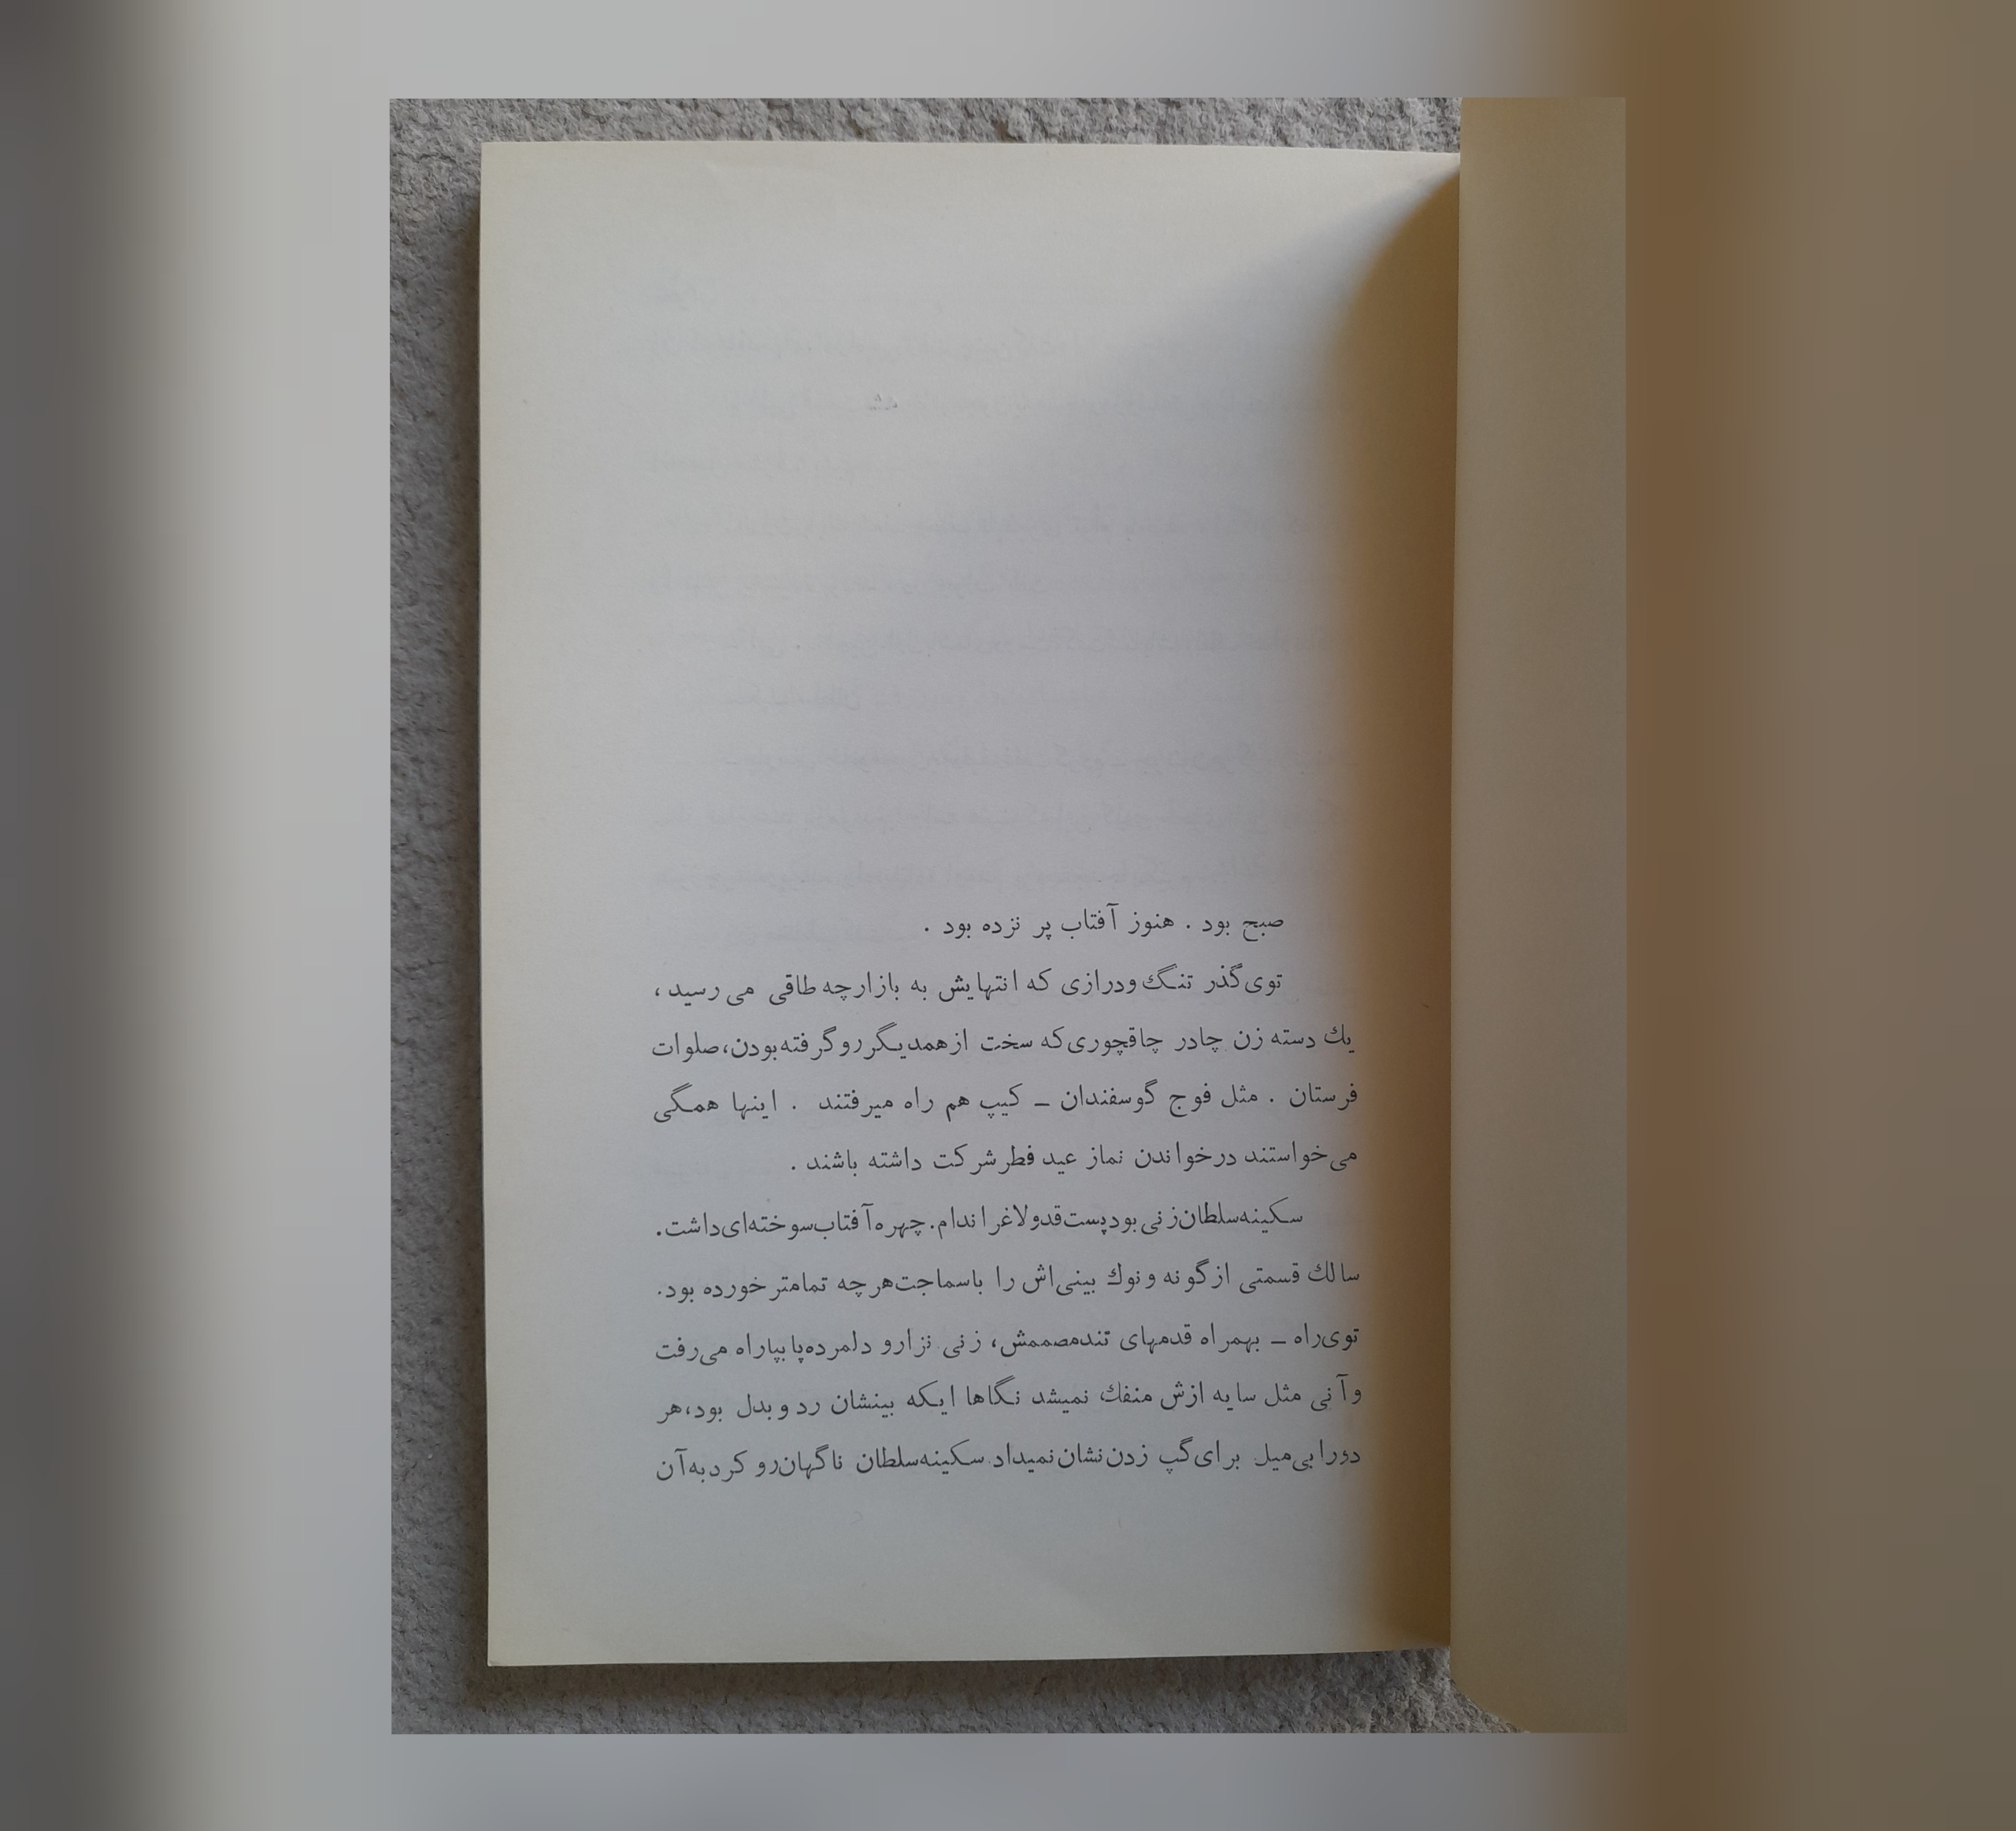 صبح بود . هنوز آفتاب پر نزده بود .
توی‌گذر تنگ ودرازی که انتهایش به بازارچه طاقی می رسید ،
یك دسته زن چادر چاقچوری‌که سخت ازهمدیگرروگرفته‌بودن،صلوات
فرستان . مثل فوج گوسفندان ـ کیپ هم راه میرفتند . اینها همگی
می‌خواستند درخواندن نماز عید فطرشرکت داشته باشند .
سکینه‌سلطان‌زنی‌بودپست‌قدولاغراندام.چهره‌آفتاب‌سوخته‌ای‌داشت.
سالك قسمتی ازگونه ونوك بینی‌اش را باسماجت‌هرچه تمامتر خورده بود.
توی‌راه ـ بهمراه قدمهای تندمصممش، زنی نزارو دلمرده‌پابپاراه می‌رفت
وآنی مثل سایه ازش منفك نمیشد نگاها ایکه بینشان رد وبدل بود،هر
دورابی‌میل برای‌گپ زدن‌نشان‌نمیداد.سکینه‌سلطان ناگهان‌رو کردبه‌آن